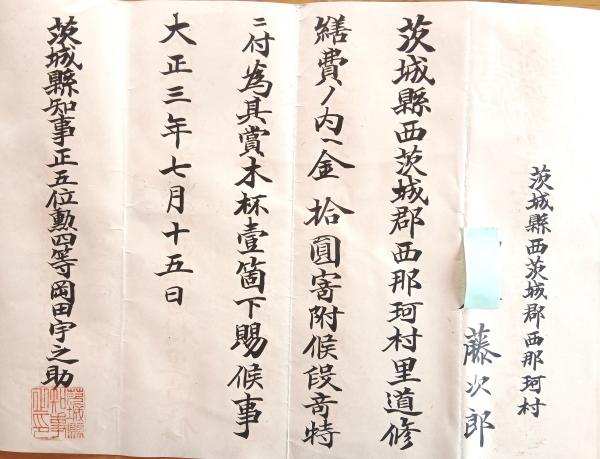 茨城縣西茨城郡西那珂村
藤次郎
茨城縣西茨城郡西那珂村里道修
繕費ノ内ヘ金拾圓寄附候段奇特
ニ付為其賞木杯壹箇下賜候事
大正三年七月十五日
茨城縣知事正五位勲四等岡田宇之助
茨城縣知事之印